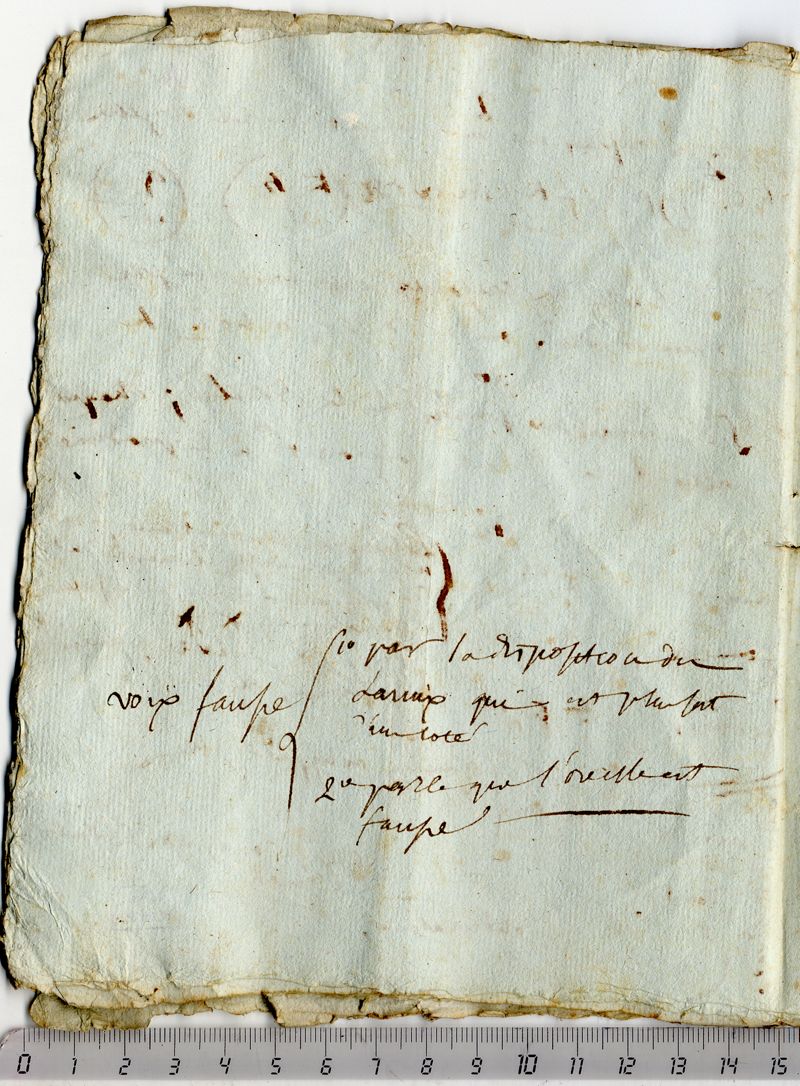 voix fausse
1o par la disposition du
Larinx qui est plus fort
d'un coté
2o parce que l'oreille est
fausse
0 1 2 3 4 5 6 7 8 9 10 11 12 13 14 15